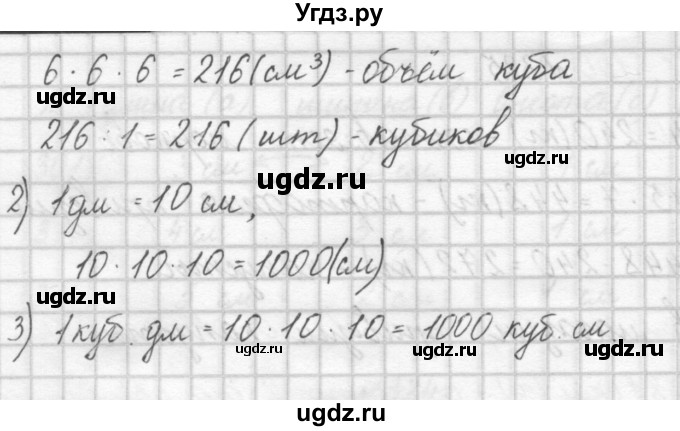 Угдз.ру
6 · 6 · 6 = 216 (см³) - объём куба
ugdz.ru ugdz.ru
216 : 1 = 216 (шт) - кубиков
ugdz.ru
2) 1 дм = 10 см,
ugdz.ru
10 · 10 · 10 = 1000 (см)
3) 1 куб. дм = 10 · 10 · 10 = 1000 куб. см
ugdz.ru ugdz.ru
ugdz.ru
ugdz.ru